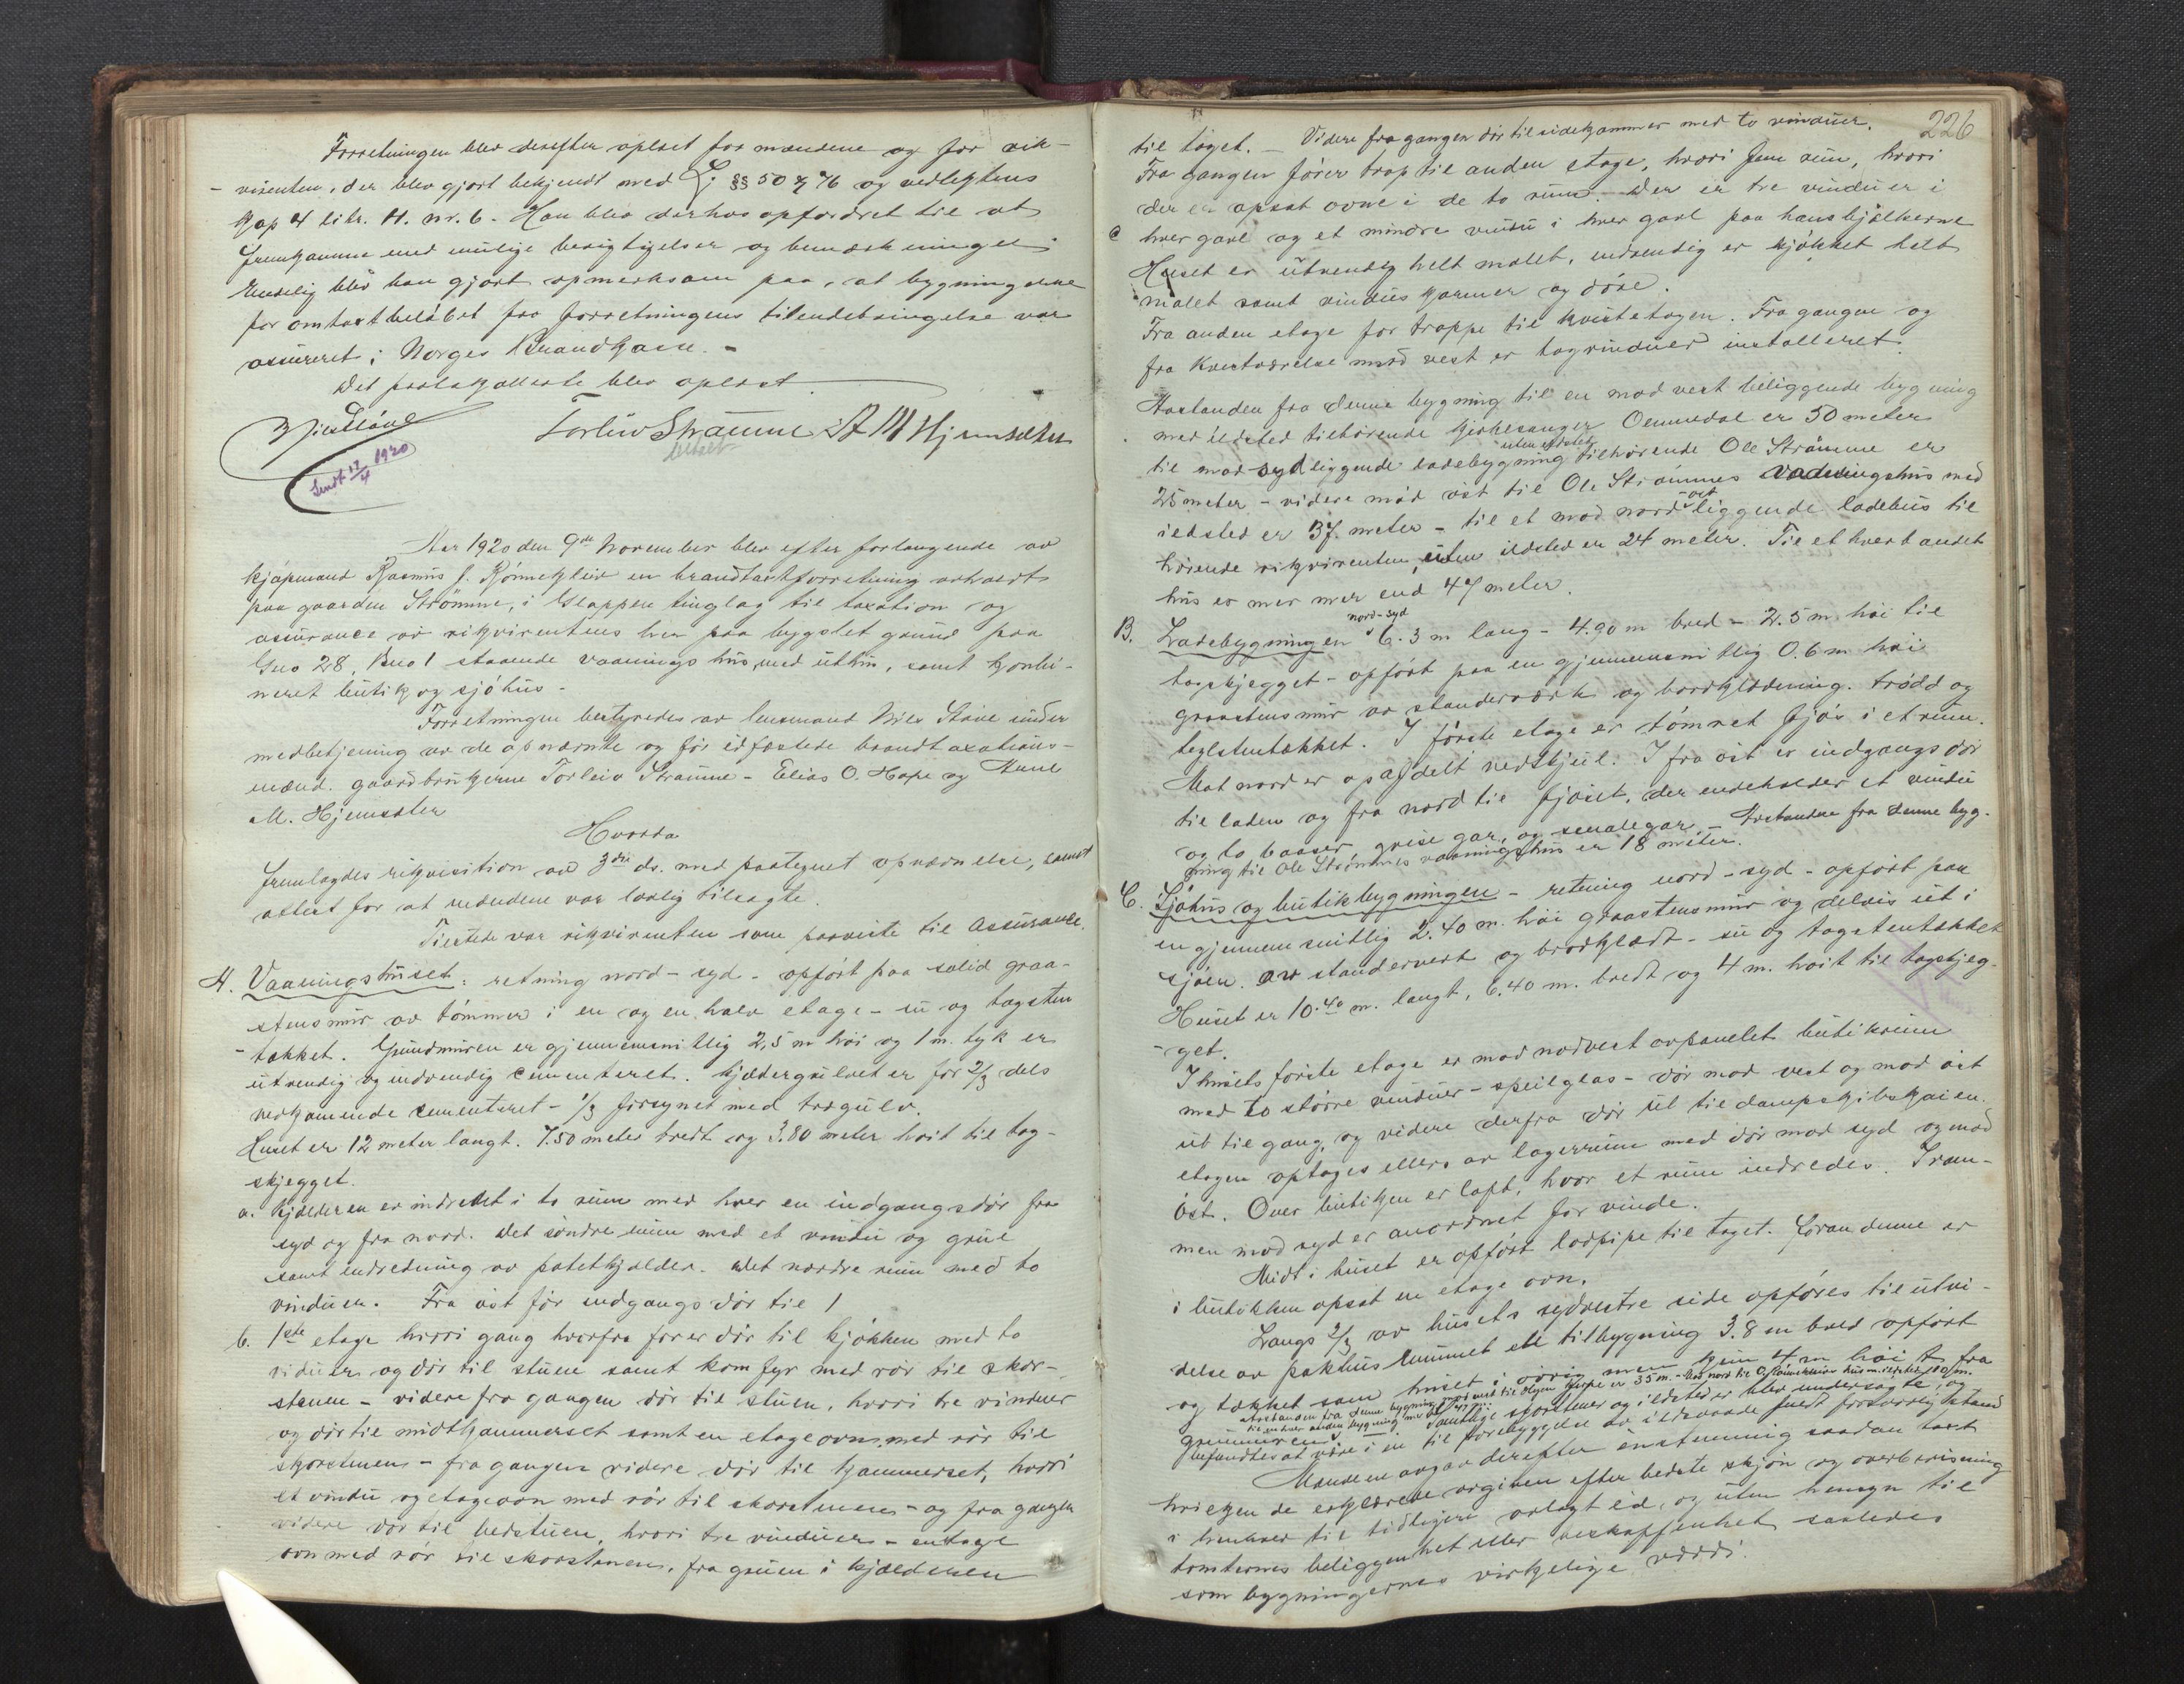 Forretningen blev derefter oplæst for mændene og for rek-
- virenten, der blev gjort bekjendt med L. §§ 50 & 76 og vedlegtens
Kap 4 litr. H. nr. 6. - Han blev derhos opfordret til at
fremkomme med mulige besigtigelser og bemærkninger
Endelig blev han gjort opmerksom paa, at bygningerne
for omtaxtbelöbet fra forretningens tilendebringelse var
assureret i Norges Brandkasse. -
Det protokollerte blev oplæst
Torleiv Straume A M Hjemsæter
Sendt 17/4 1920
Aar 1920 den 9de November blev efter forlangende av
kjöpmand Rasmus J. Rönneklev en brandtaxtforretning avholdt
paa gaarden Strömme, i tinglag til taxation og
assurance av rekvirentens her paa bygslet grund paa
Gno 28, Bno 1 staaende vaaningshus med uthus, samt kombi-
neret butik og sjöhus -
Forretningen bestyredes av lensmand Nils Stöve under
medbetjening av de opnævnte og för edfæstede brandtaxations-
mænd. gaardbrukerne Torleiv Straume - Elias O. Hope og
M. Hjemsæter
Hvorda
fremlagdes rekvisition av 3die ds. med paategnet opnævnelse, samt
attest for at mændene var lovlig tilsagte.
Tilstede var rekvirenten som paaviste til Assurance.
A. Vaaningshuset: retning nord - syd - opfört paa solid graa-
stensmur av tömmer i en og en halv etage - su og tagsten
- tækket. Grundmuren er gjennemsnitlig 2,5 m höi og 1 m. tyk er
utvendig og indvendig cementeret. Kjeldergulvet er for 2/3 dels
vedkomende cementeret - 1/3 forsynet med trægulv.
Huset er 12 meter langt. 7.50 meter bredt og 3.80 meter höit til tag-
skjegget.
a. Kjelderen er indredet i to rum med hver en indgangsdör fra
syd og fra nord. Det söndre rum med et vindu og grue
samt indredning av potetkjelder. Det nordre rum med to
vinduer. Fra öst för indgangsdör til 1
b. 1ste etage hvori gang hvorfra förer dör til kjökken med to
viduer og dör til stuen samt komfyr med rör til skor-
stenen - videre fra gangen dör til stuen, hvori tre vinduer
og dör til midtkammerset samt en etageovn med rör til
skorstenen - fra gangen videre dör til kammerset, hvori
et vindu og etageovn med rör til skorstenen - og fra gangen
videre dör til bedstuen, hvori tre vinduer - en etage
ovn med rör til skorstenen, fra gruen i kjælderen
226
til taget. - Videre fra gangen dör til sidekammer med to vinduer.
Fra gangen förer trap til anden etage, hvori fem rum, hvori
der er opsat ovne i de to rum. Der er tre vinduer i
c hver gavl og et mindre vindu i hver gavl paa hansbjælkerne
Huset er utvendig helt malet, indvendig er kjökket helt
malet samt vindus karmer og döre.
Fra anden etage för trappe til kvistetagen. Fra gangen og
fra kvistværelse mod vest er tagvinduer installeret.
Avstanden fra denne bygning til en mod vest beliggende bygning
med ildsted tilhörende Kirkesanger Oenmedal er 50 meter
til mod syd liggende ladebygning uten ildsted tilhörende Ole Strömme er
25 meter - videre mod öst til Ole Strömmes vaaningshus med
ildsted er 37 meter - til et mod nord - öst liggende ladehus til
hörende rekvirenten, uten ildsted er 24 meter. Til et hvert andet
hus er mer mer end 47 meter.
B. Ladebygningen nord - syd 6.3 m lang - 4.90 m bred - 2.5 m höi til
tagskjegget - opfört paa en gjennemsnitlig 0.6 m höi
graastensmur av standerværk og bordklædning. trödd og
teglstentækket. I förste etage er tömret fjös i et rum.
Mot nord er opafdelt vedskjul. I fra öst er indgangsdör
til laden og fra nord til fjöset, der indeholder et vindu
og to baaser, grise gar, og smalegar. - Avstanden fra denne byg-
ning til Ole Strömmes vaaningshus er 18 meter.
C. Sjöhus og butikbygningen - retning nord - syd - opfört paa
en gjennemsnitlig 2.40 m. höi graastensmur og delvis ut i
sjöen. av standervert og bordklædt - su og tagstentækket
Huset er 10.40 m. langt, 6.40 m. bredt og 4 m. höit til tagskjeg-
- get.
I husets förste etage er mod nodvest avpanelet butikrum
med to större vinduer - speilglas - dör mod vest og mod öst
ut til gang, og videre derfra dör ut til dampskibskaien.
etagen optages ellers av lagerrum med dör mod syd og mod
öst. Over butiken er loft, hvor et rum indredes. I röm-
men mod syd er anordnet for vinde.
Midt i huset er opfört lodpipe til taget. Foran denne er
i butikken opsat en etage ovn.
Langs 2/3 av husets sydvestre side opföres til utvi-
delse av pakhusrummet ett tilbygning 3.8 m bred opfört
og tækket som huset i övrig men kun 4 m höi fra
grunmuren.
Avstanden fra denne bygning mod vest til Hope er 35 m. - Mod nord til hus m. ildsted 100 m.
Til enhver anden bygning mer end 47 m.
Samtlige skorstener og ildsteder blev undersögte, og
befandtes at være i en til forebyggelse av ildsvaade fuldt forsvarlig stand
Mændene avgav derefter enstemmig saadan taxt
hvilken de erklærede avgiven efter bedste skjön og overbevisning
i henhold til tidligere avlagt ed, og uten hensyn til
tomternes beliggenhet eller beskaffenhet saaledes
som bygningernes virkelige værdi.